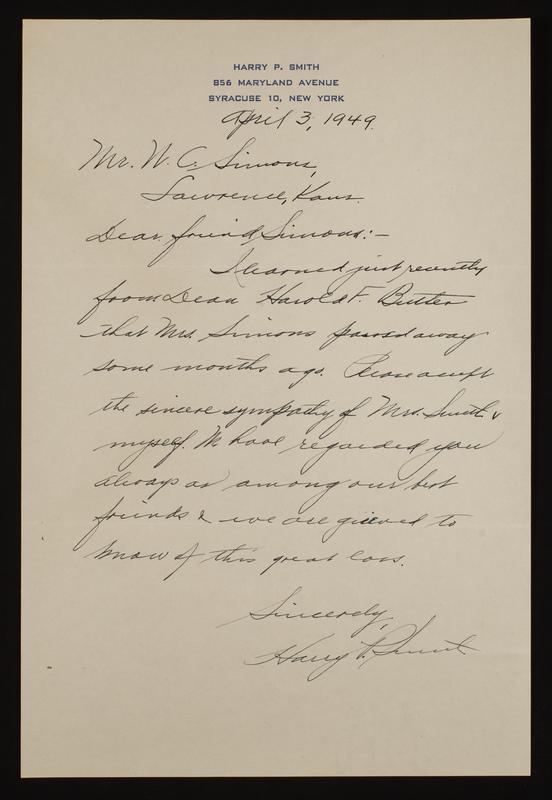 HARRY P. SMITH
856 MARYLAND AVENUE
SYRACUSE 10, NEW YORK
April 3, 1949.
Mr. W. C. Simons,
Lawrence, Kans.
Dear friend Simons:-
I learned just recently
from Dean Harold F. Butler
that Mrs. Simons passed away
some months ago. Please accept
the sincere sympathy of Mrs. Smith &
myself. We have regarded you
always as among our best
friends & we are grieved to
know of this great loss.
Sincerely,
Harry P. Smith